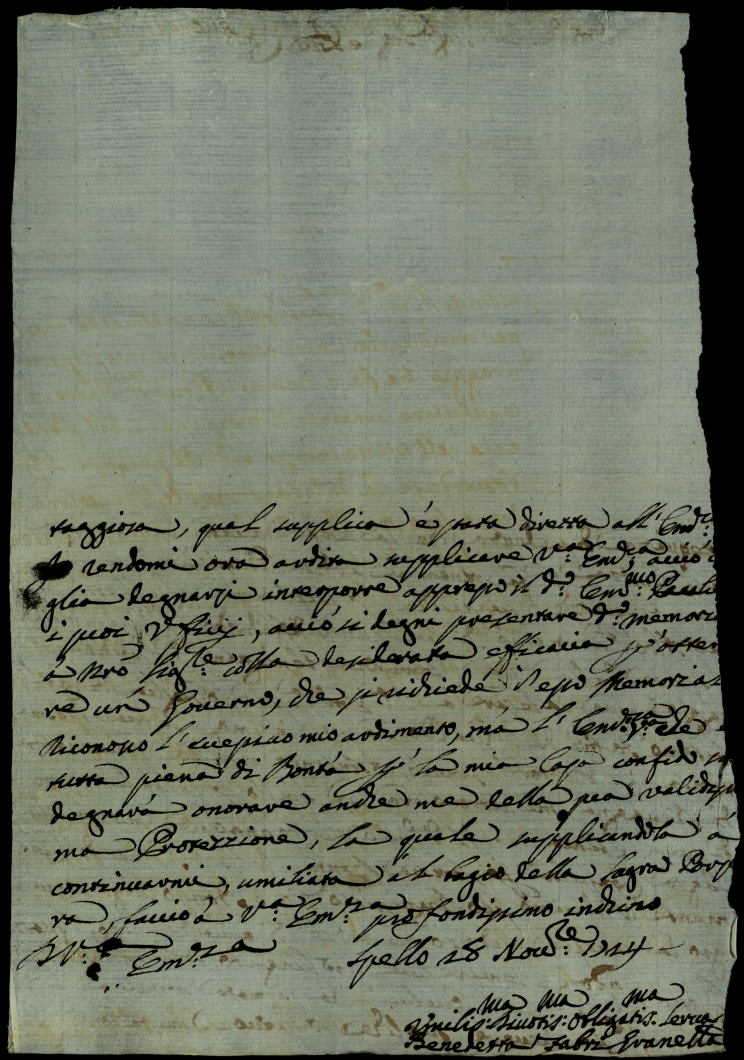 taggiosa, qual supplica é stata diretta all' Em:
rendomi ora ardita supplicare V.a Em.za, acció
glia degnarsi interporre appresso il d.o Em.mo Paol
i suoi Ufficij, acció si degni presentare d.o memoria
á Nro Sig.re colla desiderata efficacia p' otten
re un Governo, che si richiede in esso Memoria
Riconosco l' mio ardimento, má l' Em.za V.ra che
tutta piena di Bontá p' la mia Casa confido
degnará onorare anche me della sua validissi
ma Protezzione, la quale supplicandola á
continuarmi, umiliata al bagio della Sagra Porpo
ra, faccio á V.a Em.za profondissimo inchino
D V.a Em.za Spello 28 Nov.re 1724
Umilis.ma Divotis.ma Obligatis.ma Serva
Benedetta Fabri